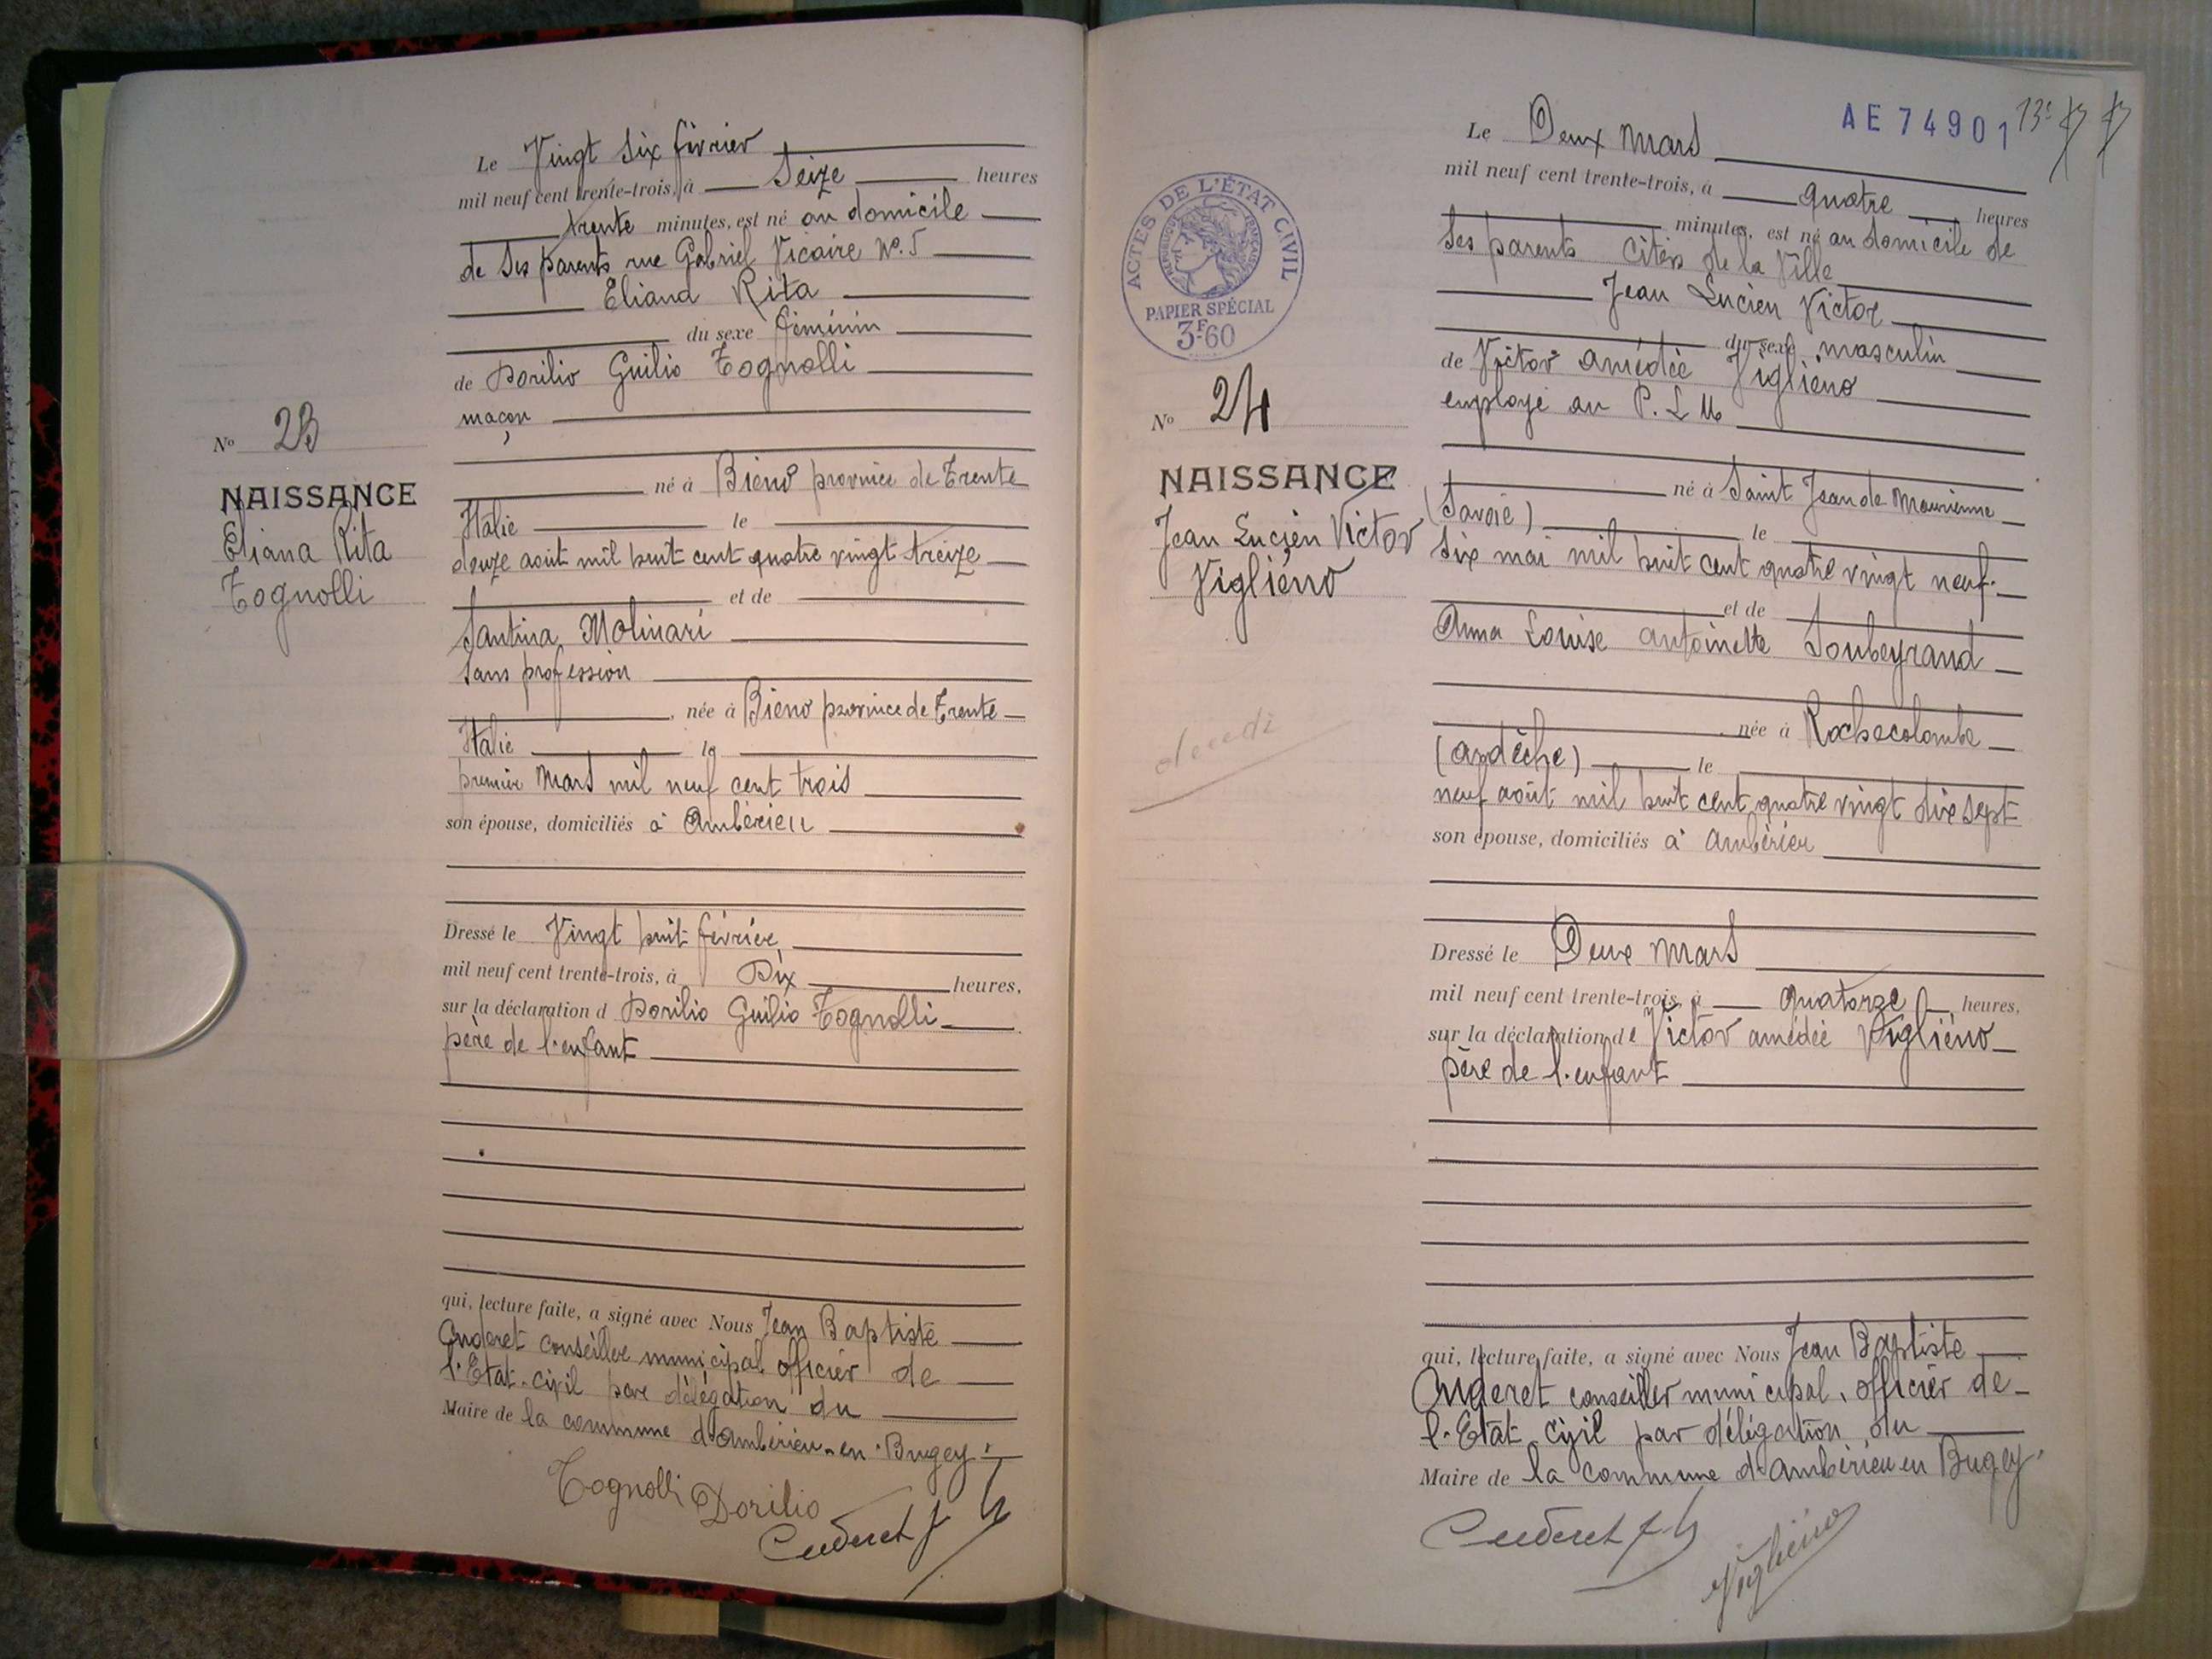 Le Vingt six février
mil neuf cent trente-trois, à Seize heures
trente minutes, est né au domicile
de ses parents rue Gabriel Vicaire N°. 5
Eliana Rita
du sexe féminin
de Dorilio Guilio Tognolli
maçon
né à Bieno province de Trente
Italie le
douze août mil huit cent quatre vingt treize
et de
Santina Molinari
sans profession
, née à Bieno province de Trente
Italie le
premier Mars mil neuf cent trois
son épouse, domiciliés à Ambérieu
Dressé le Vingt huit février
mil neuf cent trente-trois, à Dix heures,
sur la déclaration d Dorilio Guilio Tognolli
père de l'enfant
qui, lecture faite, a signé avec Nous Jean Baptiste
conseiller municipal officier de
l'Etat-civil par délégation du
Maire de la commune d'Ambérieu-en-Bugey.
Tognolli Dorilio
N° 23
NAISSANCE
Eliana Rita
Tognolli
AE 74901
Le Deux Mars
mil neuf cent trente-trois, à quatre heures
minutes, est né au domicile de
ses parents Cités de la Ville
Jean Lucien Victor
du sexe masculin
de Victor Amédée Viglièno
employé au P.L.M
né à Saint Jean de Maurienne
(Savoie) le
six mai mil huit cent quatre vingt neuf.
et de
Anna Louise Antoinette Soubeyrand
, née à Rochecolombe
(Ardèche) le
neuf août mil huit cent quatre vingt dix sept
son épouse, domiciliés à Ambérieu
Dressé le Deux Mars
mil neuf cent trente-trois, à quatorze heures,
sur la déclaration de Victor Amédée Viglièno
père de l'enfant
qui, lecture faite, a signé avec Nous Jean Baptiste
conseiller municipal, officier de
l'Etat civil par délégation du
Maire de la commune d'Ambérieu en Bugey.
Viglièno
ACTES DE L'ÉTAT CIVIL
RÉPUBLIQUE FRANÇAISE
PAPIER SPÉCIAL
3F60
N° 24
NAISSANCE
Jean Lucien Victor
Viglièno